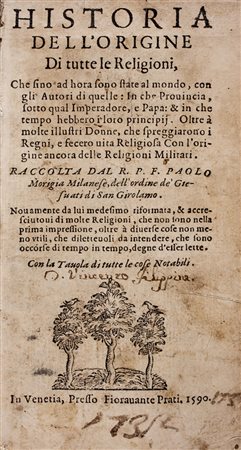 HISTORIA
DELL'ORIGINE
Di tutte le Religioni,
Che sino ad hora sono state al mondo, con
gli Autori di quelle: In che Prouincia,
sotto qual Imperadore, e Papa: & in che
tempo hebbero i loro principij. Oltre à
molte illustri Donne, che spreggiarono i
Regni, e fecero uita Religiosa Con l'ori-
gine ancora delle Religioni Militari.
RACCOLTA DAL R. P. F. PAOLO
Morigia Milanese, dell'ordine de' Gie-
suati di San Girolamo.
Nouamente da lui medesimo riformata, & accre-
sciutoui di molte Religioni, che non sono nella
prima impressione, oltre à diuerse cose non me-
no vtili, che diletteuoli, da intendere, che sono
occorse di tempo in tempo, degne d'esser lette.
Con la Tauola di tutte le cose Notabili.
D. Vincenzo
In Venetia, Presso Fiorauante Prati. 1590.